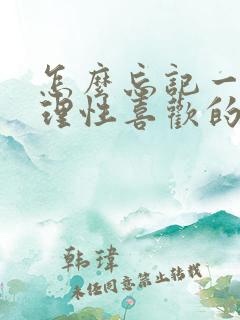 怎麼忘記一
理性喜歡的
韩瑋
未任同意禁止转载